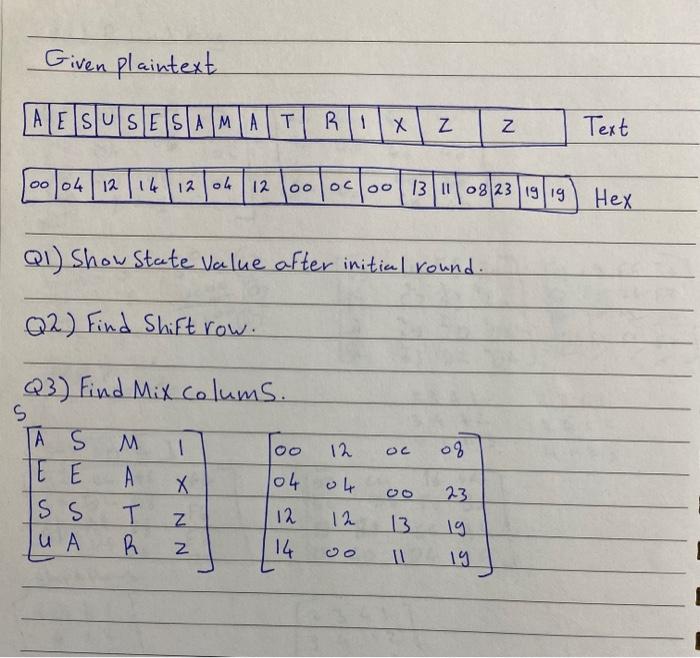 Given plaintext
A E S U S E S A M A T R I X Z Z Text
00 04 12 14 12 04 12 00 0C 00 13 11 08 23 19 19 Hex
Q1) Show State Value after initial round.
Q2) Find Shift row.
Q3) Find Mix colums.
S
A S M I 00 12 0C 08
E E A X 04 04 00 23
S S T Z 12 12 13 19
U A R Z 14 00 11 19